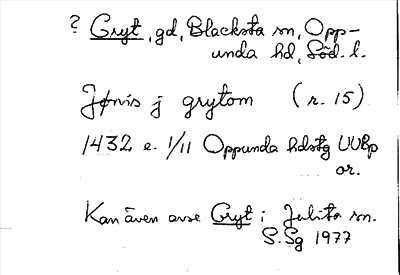 ? Gryt, gd, Blacksta sn, Opp-
unda hd, Söd. l.
Jønis j grytom (r. 15)
1432 e. 1/11 Oppunda hdstg UUBp
or.
Kan även avse Gryt i Julita sn.
S.Sg 1977